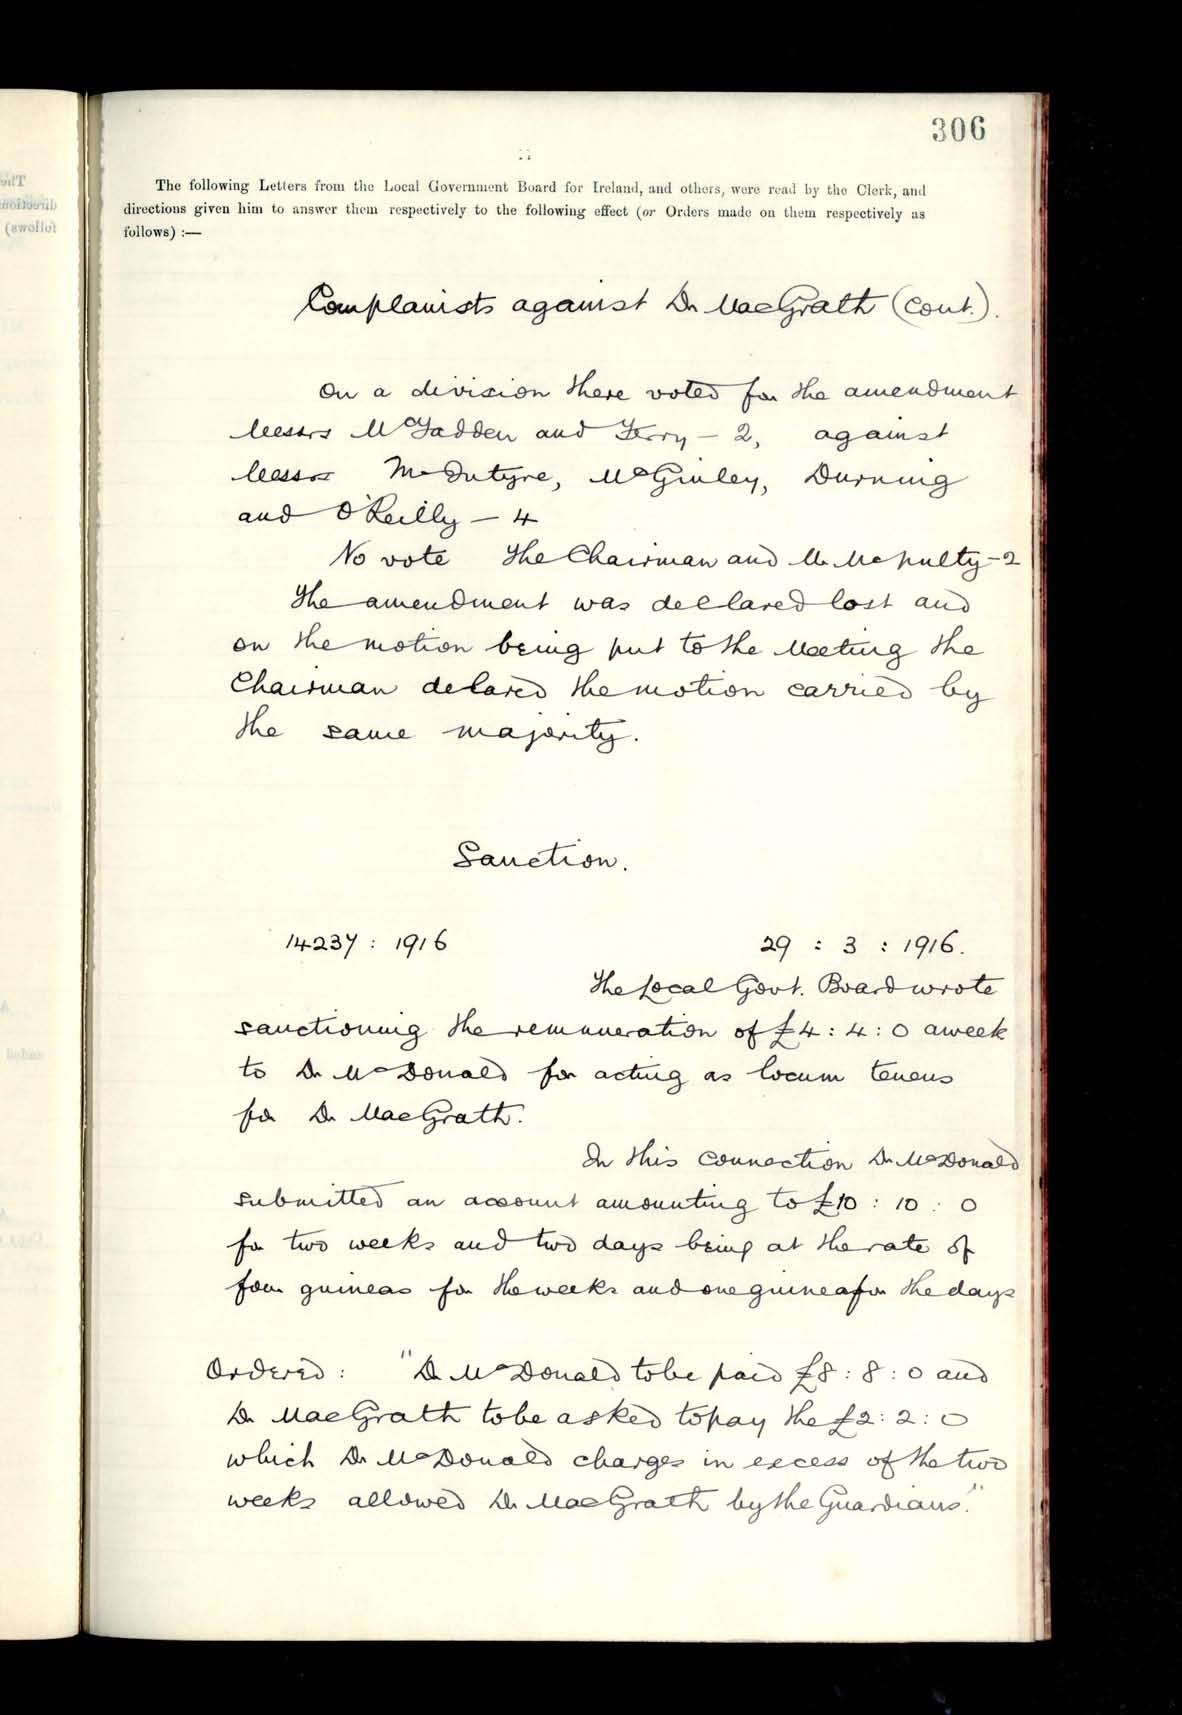 306
The following Letters from the Local Government Board for Ireland, and others, were read by the Clerk, and
directions given him to answer them respectively to the following effect (or Orders made on them respectively as
follows) :—
Complainsts against Dr MacGrath (cont.).
On a division there voted for the amendment
Messrs McFadden and Ferry – 2, against
Messrs McIntyre, McGinley, Durning
and O'Reilly – 4
No vote The Chairman and Mr McNulty – 2
The amendment was declared lost and
on the motion being put to the Meeting the
Chairman delared the motion carried by
the same majority.
Sanction.
14237 : 1916 29 : 3 : 1916.
The Local Govt. Board wrote
sanctioning the remuneration of £4 : 4 : 0 a week
to Dr McDonald for acting as locum tenens
for Dr MacGrath.
In this connection Dr McDonald
submitted an account amounting to £10 : 10 : 0
for two weeks and two days being at the rate of
four guineas for the weeks and one guinea for the days
Ordered : "Dr McDonald to be paid £8 : 8 : 0 and
Dr MacGrath to be asked to pay the £2 : 2 : 0
which Dr McDonald charges in excess of the two
weeks allowed Dr MacGrath by the Guardians."